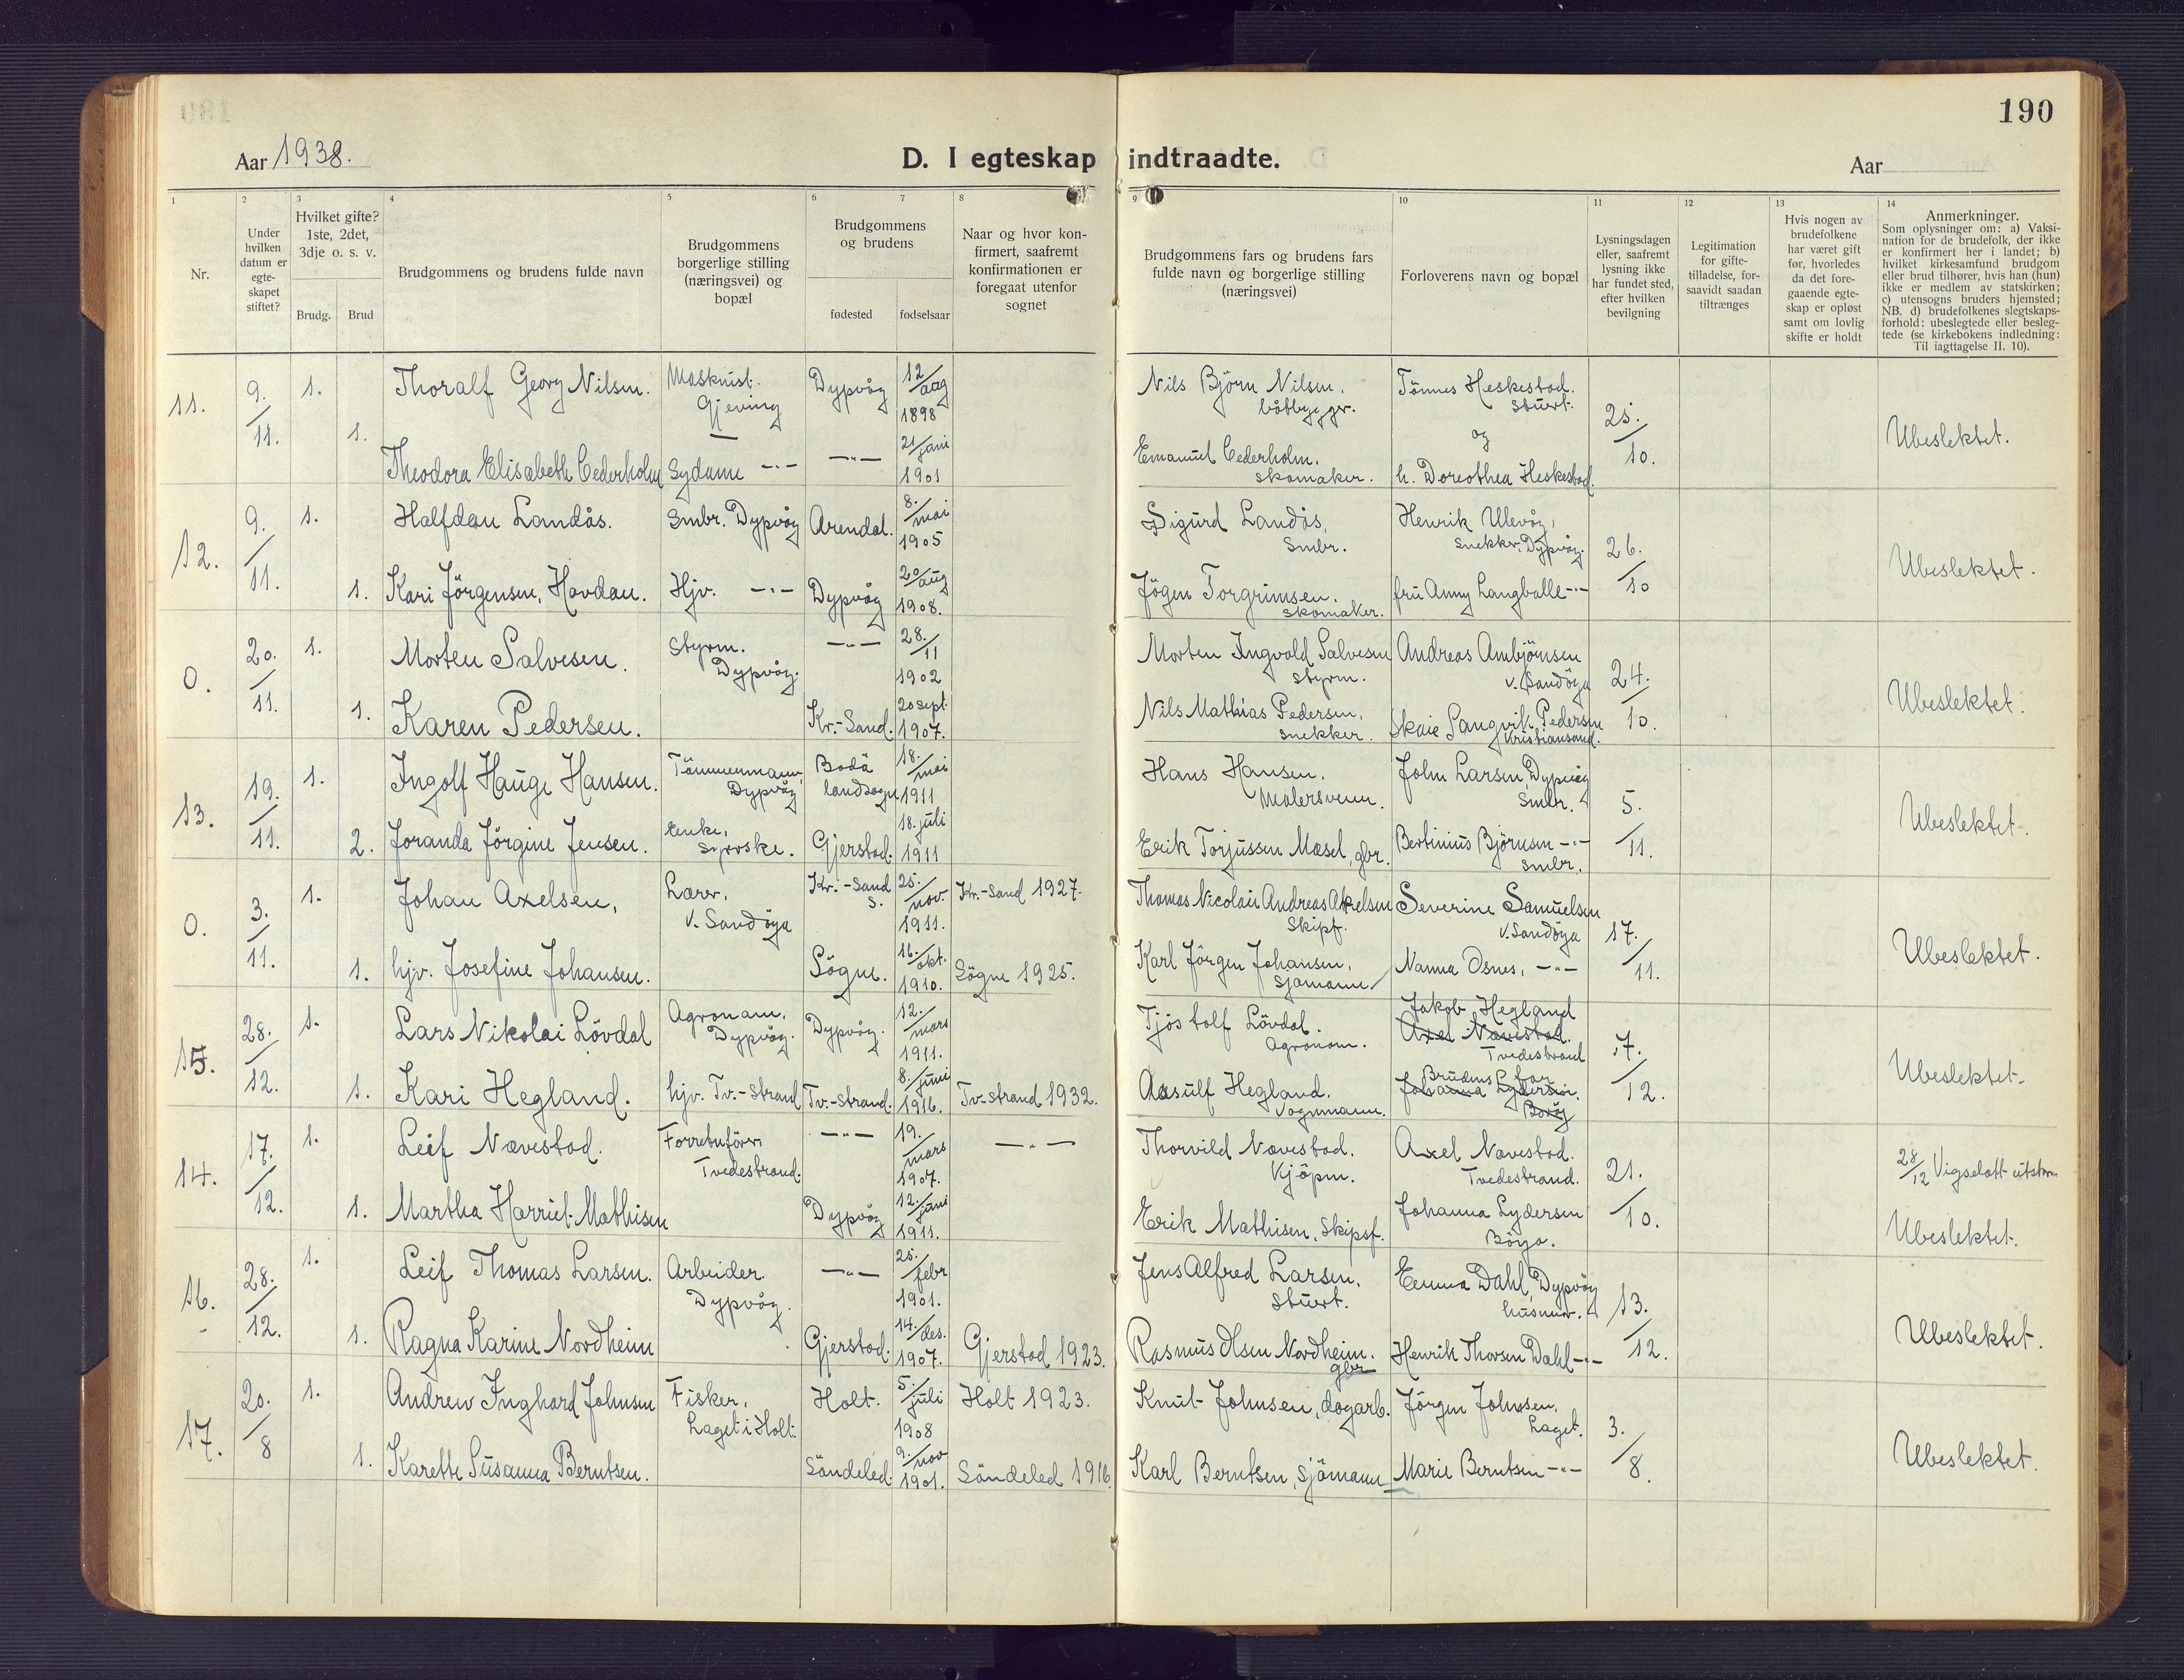 190
Aar 1938.
D. I egteskap indtraadte.
Aar
1 2 3 4 5 6 7 8 9 10 11 12 13 14
Nr.
Under hvilken datum er egte-skapet stiftet?
Hvilket gifte? 1ste, 2det, 3dje o. s. v.
Brudg. Brud
Brudgommens og brudens fulde navn
Brudgommens borgerlige stilling (næringsvei) og bopæl
Brudgommens og brudens
fødested fødselsaar
Naar og hvor kon-firmert, saafremt konfirmationen er foregaat utenfor sognet
Brudgommens fars og brudens fars fulde navn og borgerlige stilling (næringsvei)
Forloverens navn og bopæl
Lysningsdagen eller, saafremt lysning ikke har fundet sted, efter hvilken bevilgning
Legitimation for gifte-tilladelse, for-saavidt saadan tiltrænges
Hvis nogen av brudefolkene har været gift før, hvorledes da det fore-gaaende egte-skap er opløst samt om lovlig skifte er holdt
Anmerkninger.
Som oplysninger om: a) Vaksi-nation for de brudefolk, der ikke er konfirmert her i landet; b) hvilket kirkesamfund brudgom eller brud tilhører, hvis han (hun) ikke er medlem av statskirken; c) utensogns bruders hjemsted; NB. d) brudefolkenes slegtskaps-forhold: ubeslegtede eller besleg-tede (se kirkebokens indledning: Til iagttagelse II. 10).
11. 9./11. 1. Thoralf Georg Nilsen. Maskinist. Gjeving Dypvåg 12/aug 1898 Nils Björn Nilsen. båtbygger. Tönnes Heskestad. Stuert. 25./10. Ubeslektet.
1. Theodora Elisabeth Cederholm Sydame —"— —"— 21/juni 1901 Emanuel Cederholm. Skomaker. og h. Dorothea Heskestad.
12. 9./11. 1. Halfdan Landås. Smbr. Dypvåg Arendal. 8./mai 1905 Sigurd Landås, Smbr. Henrik Ulevåg, Snekker, Dypvåg. 26./10 Ubeslektet.
1. Kari Jörgensen, Havdan. Hjv. —"— Dypvåg 20/aug 1908. Jögen Torgrimsen. Skomaker. fru Anny Langballe —"—
0. 20./11. 1. Morten Salvesen. Styrm. Dypvåg. —"— 28./11 1902 Morten Ingvald Salvesen Styrm. Andreas Ambjörnsen v. Sandöya 24./10. Ubeslektet.
1. Karen Pedersen. Kr.-Sand. 20 sept. 1907. Nils Mathias Pedersen, Snekker. Skaie Langvik Pedersen Kristiansand.
13. 19./11. 1. Ingolf Hauge Hansen. Tömmermann, Dypvåg Bodö landsogn 18./mai 1911 Hans Hansen. Malersvenn. John Larsen Dypvåg Smbr. 5./11. Ubeslektet.
2. Joranda Jörgine Jensen. Enke, Syerske. Gjerstad. 18. juli 1911 Erik Torjussen Mæsel, gbr. Bertinius Björnsen —"— Smbr.
0. 3./11. 1. Johan Axelsen, Lærer, V. Sandöya Kr.-Sand S. 25./nov. 1911. Kr.-Sand 1927. Thomas Nicolai Andreas Akselsen Skipf. Severine Samuelsen V. Sandöya 17./11. Ubeslektet.
1. hjv. Josefine Johansen. Sögne. 16./okt. 1910. Sögne 1925. Karl Jörgen Johansen, Sjömann Nanna Osnes, —"—
15. 28./12. 1. Lars Nikolai Lövdal Agronom. Dypvåg. Dypvåg. 12./mars 1911. Tjöstolf Lövdal. Agronom. Jakob Hegland Axel Nævestad. Tvedestrand 17./12. Ubeslektet.
1. Kari Hegland. hjv. Tv.-Strand Tv.-Strand. 8./juni 1916. Tv-Strand 1932. Aasulf Hegland. Vognmann. Brudens far Johanna Lydersen. Borøy
14. 17./12. 1. Leif Nævestad. Forretnförer. Tvedestrand. —"— 19./mars 1907. —"— Thorvild Nævestad. Kjöpm. Axel Nævestad. Tvedestrand. 21./10. 28/12 Vigselatt utstav
1. Martha Harriet Mathisen Dypvåg 12./juni 1911. Erik Mathisen, Skipsf. Johanna Lydersen Böya. Ubeslektet.
16. 28./12. 1. Leif Thomas Larsen. Arbeider. Dypvåg. —"— 25./febr 1901. Jens Alfred Larsen. Stuert. Emma Dahl, Dypvåg husmor. 13./12. Ubeslektet.
1. Ragna Karine Nordheim Gjerstad. 14./des. 1907. Gjerstad 1923. Rasmus Olsen Nordheim. gbr Henrik Thorsen Dahl —"—
17. 20./8 1. Andrew Inghard Johnsen Fisker, Laget i Holt. Holt. 5./juli 1908 Holt 1923. Knut Johnsen, dagarb. Jörgen Johnsen, Laget. 3./8. Ubeslektet.
1. Karette Susanna Berntsen. Söndeled. 9./nov 1901. Söndeled 1916. Karl Berntsen, Sjömann Marie Berntsen —"—